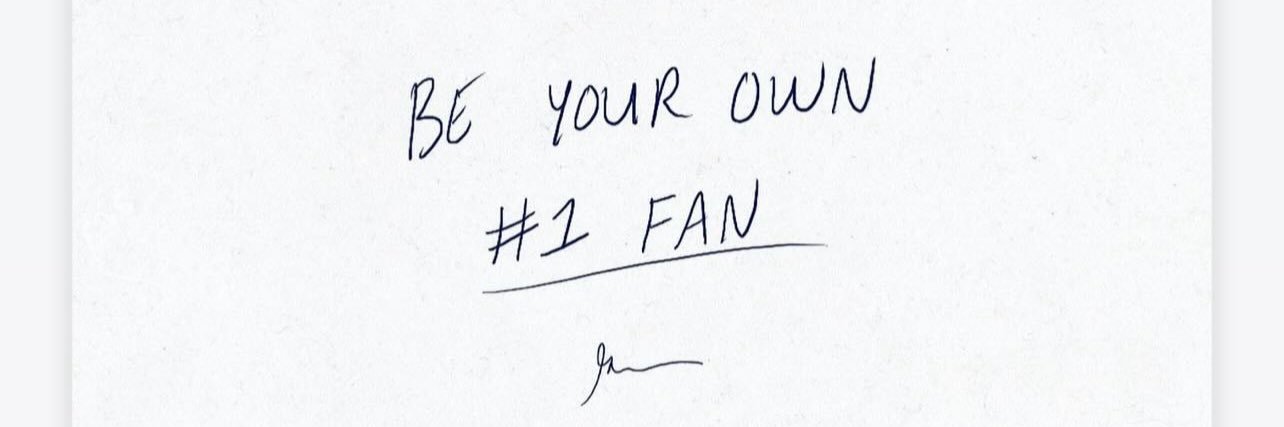 BE YOUR OWN
#1 FAN